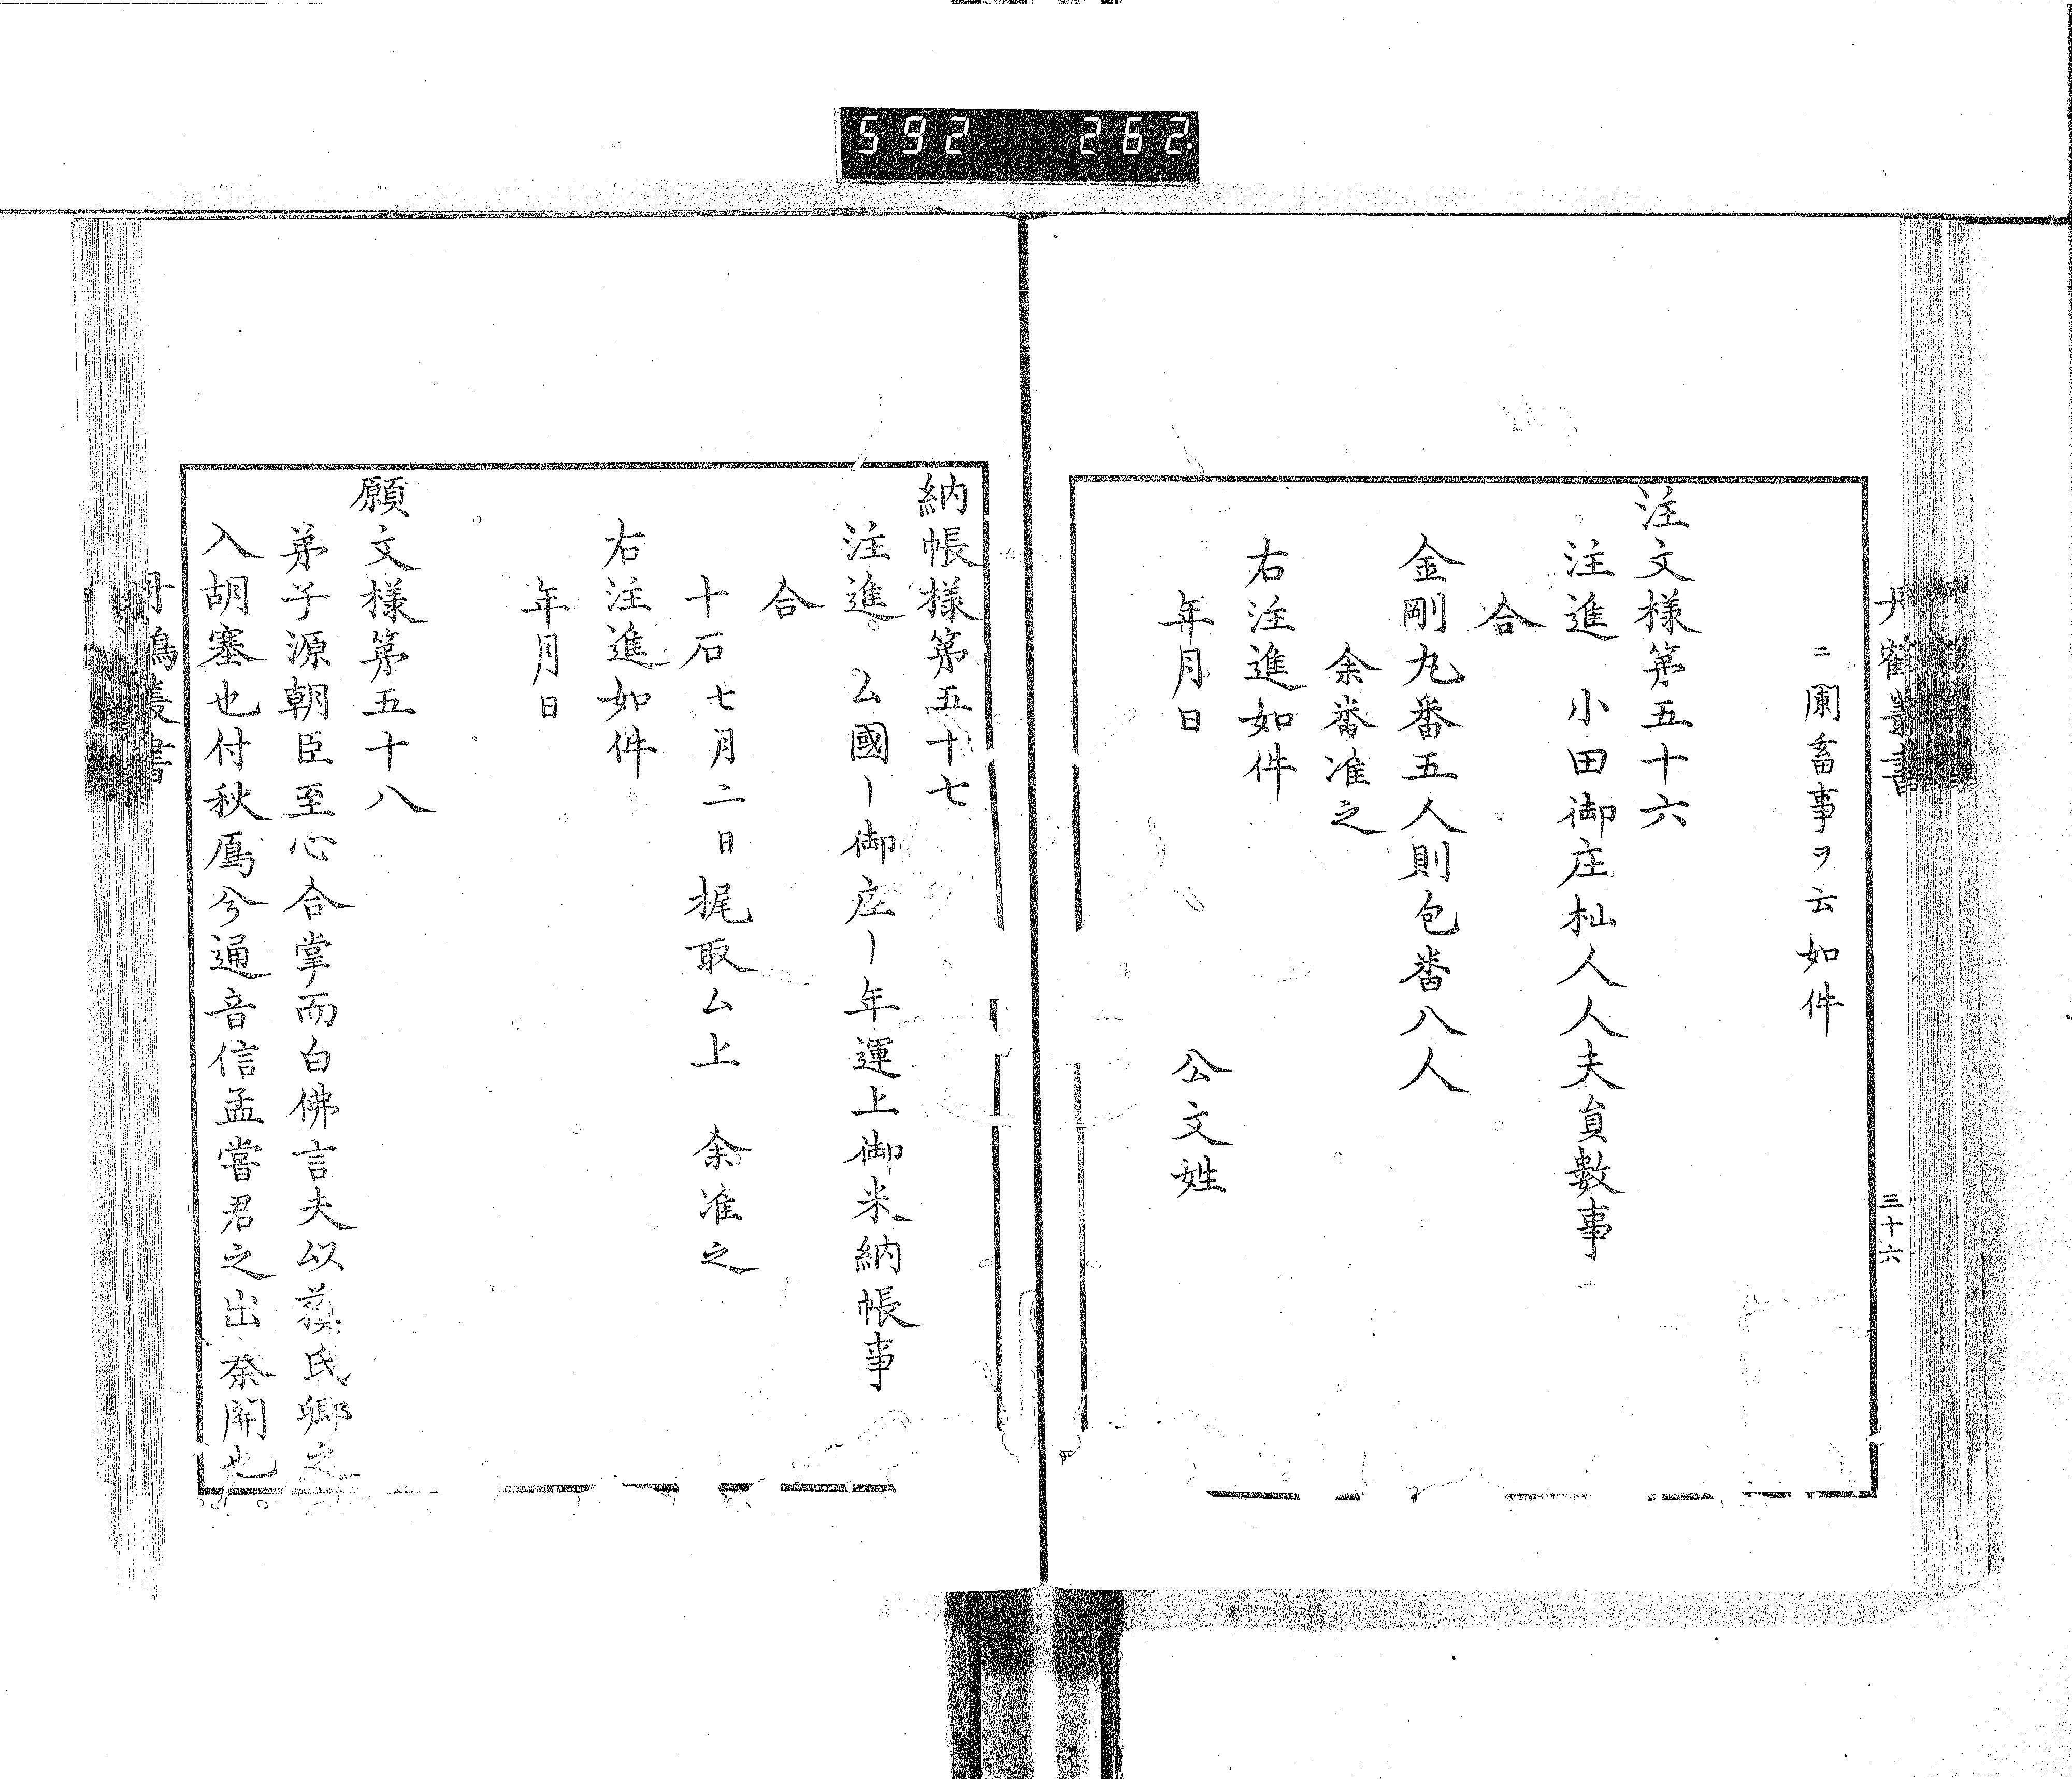 592 262
丹鶴叢書 三十六
ニ圂畜事ヲ云如件
注文様第五十六
注進 小田御庄杣人人夫員數事
合
金剛丸番五人則包番八人
余番准之
右注進如件
年月日 公文姓
納帳様第五十七
注進 厶國〡御庄〡年運上御米納帳事
合
十石七月二日梶取厶上 余准之
右注進如件
年月日
願文様第五十八
弟子源朝臣至心合掌而白佛言夫以蘓氏卿之
入胡塞也付秋鴈兮通音信孟嘗君之出秦關也
丹鶴叢書